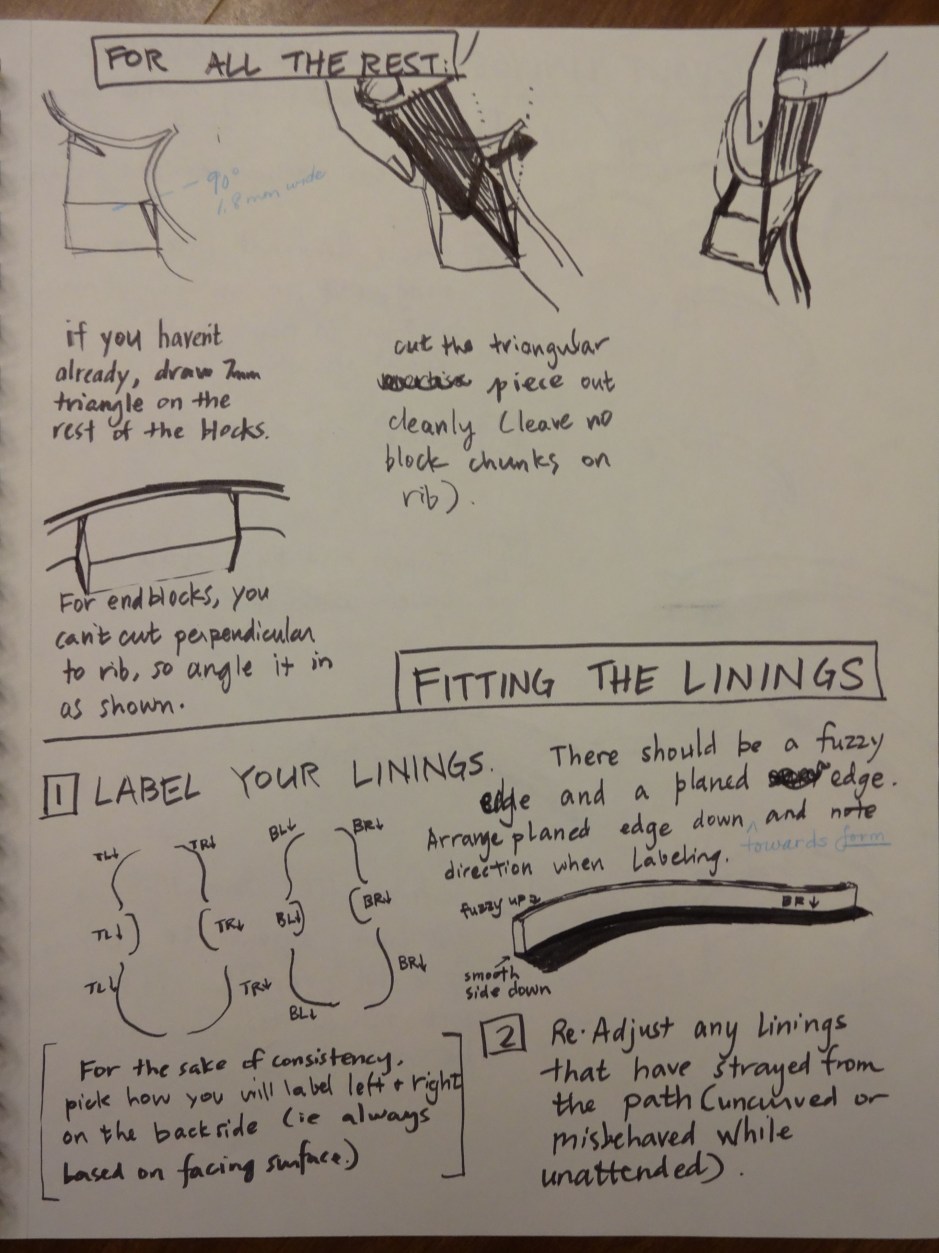 FOR ALL THE REST:
90°
1.8mm wide
if you haven't
already, draw 7mm
triangle on the
rest of the blocks.
cut the triangular
piece out
cleanly (leave no
block chunks on
rib).
For endblocks, you
can't cut perpendicular
to rib, so angle it in
as shown.
FITTING THE LININGS
1 LABEL YOUR LININGS.
There should be a fuzzy
edge and a planed edge.
Arrange planed edge down ^ and note
towards form
direction when Labeling.
TL↓ TR↓ BL↓ BR↓
TL↓ TR↓ BL↓ BR↓
TL↓ TR↓ BL↓ BR↓
fuzzy up
BR↓
smooth
side down
[For the sake of consistency,
pick how you will label left + right
on the backside (ie always
based on facing surface.)]
2 Re-Adjust any Linings
that have strayed from
the path (uncurved or
misbehaved while
unattended).